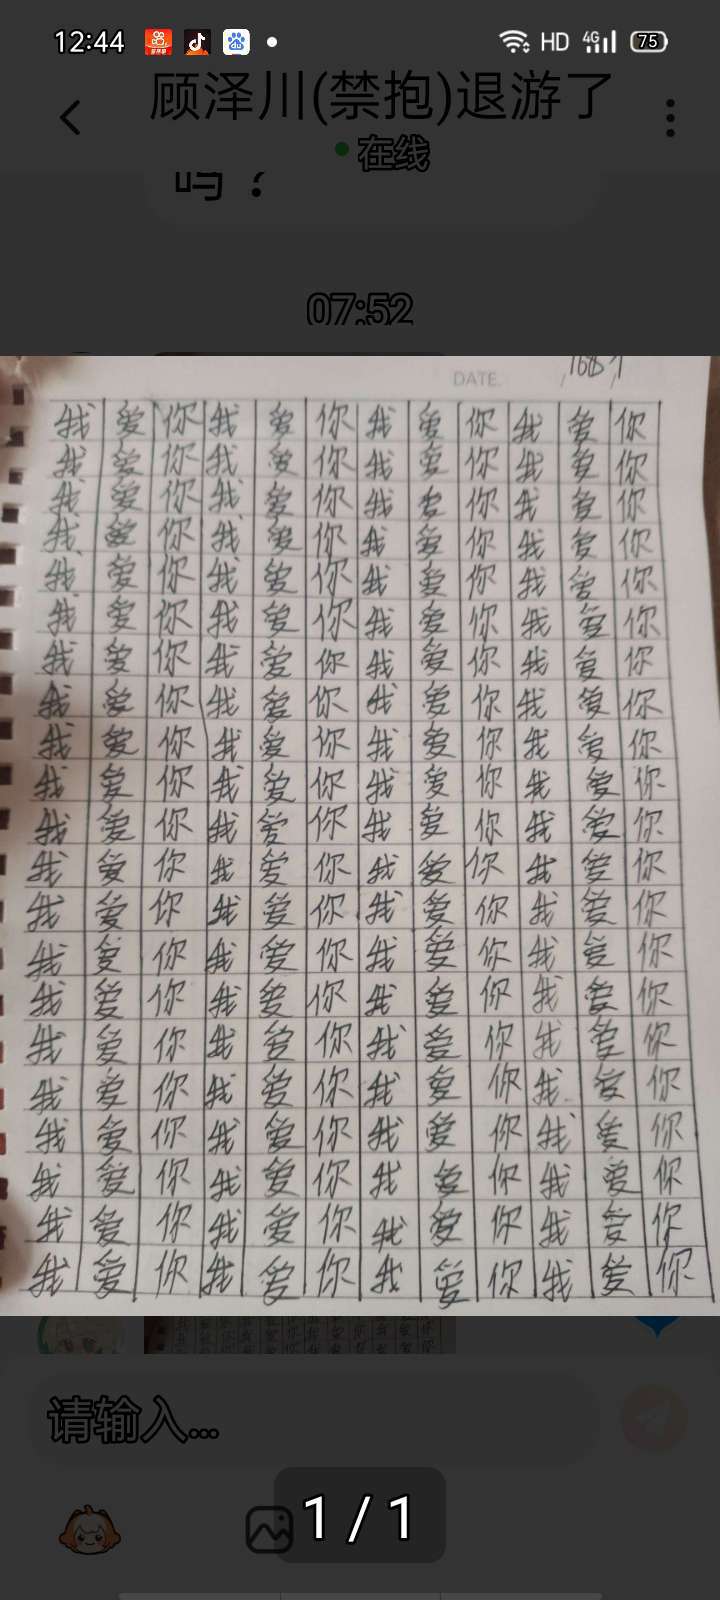 12:44 HD 4G 75
顾泽川(禁抱)退游了
在线
吗？
07:52
DATE.
我爱你我爱你我爱你我爱你
我爱你我爱你我爱你我爱你
我爱你我爱你我爱你我爱你
我爱你我爱你我爱你我爱你
我爱你我爱你我爱你我爱你
我爱你我爱你我爱你我爱你
我爱你我爱你我爱你我爱你
我爱你我爱你我爱你我爱你
我爱你我爱你我爱你我爱你
我爱你我爱你我爱你我爱你
我爱你我爱你我爱你我爱你
我爱你我爱你我爱你我爱你
我爱你我爱你我爱你我爱你
我爱你我爱你我爱你我爱你
我爱你我爱你我爱你我爱你
我爱你我爱你我爱你我爱你
我爱你我爱你我爱你我爱你
我爱你我爱你我爱你我爱你
我爱你我爱你我爱你我爱你
我爱你我爱你我爱你我爱你
我爱你我爱你我爱你我爱你
请输入...
1 / 1